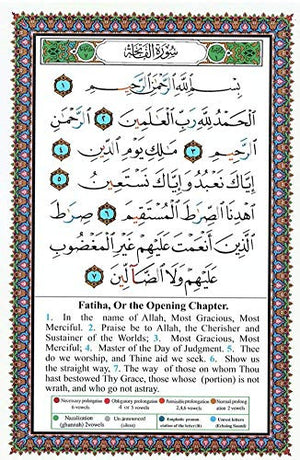 سُورَةُ الفَاتِحَةِ
بِسْمِ ٱللَّهِ ٱلرَّحْمَٰنِ ٱلرَّحِيمِ ١
ٱلْحَمْدُ لِلَّهِ رَبِّ ٱلْعَٰلَمِينَ ٢ ٱلرَّحْمَٰنِ
ٱلرَّحِيمِ ٣ مَٰلِكِ يَوْمِ ٱلدِّينِ ٤
إِيَّاكَ نَعْبُدُ وَإِيَّاكَ نَسْتَعِينُ ٥
ٱهْدِنَا ٱلصِّرَٰطَ ٱلْمُسْتَقِيمَ ٦ صِرَٰطَ
ٱلَّذِينَ أَنْعَمْتَ عَلَيْهِمْ غَيْرِ ٱلْمَغْضُوبِ
عَلَيْهِمْ وَلَا ٱلضَّآلِّينَ ٧
Fatiha, Or the Opening Chapter.
1. In the name of Allah, Most Gracious, Most
Merciful. 2. Praise be to Allah, the Cherisher and
Sustainer of the Worlds; 3. Most Gracious, Most
Merciful; 4. Master of the Day of Judgment. 5. Thee
do we worship, and Thine aid we seek. 6. Show us
the straight way, 7. The way of those on whom Thou
hast bestowed Thy Grace, those whose (portion) is not
wrath, and who go not astray.
Necessary prolongation Obligatory prolongation Permissible prolongation Normal prolong
6 vowels 4 or 5 vowels 2,4,6 vowels ation 2 vowels
Nazalization Un announced Emphatic pronun Unrest letters
(ghunnah) 2vowels (silent) ciation of the letter (R) (Echoing Sound)